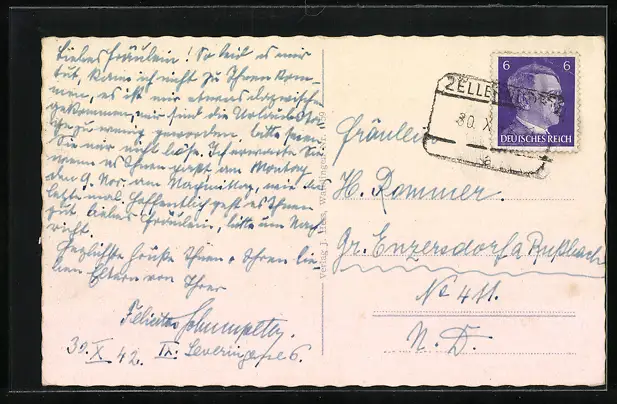 Liebes Fräulein! So leid es mir
tut, kann ich nicht zu Ihnen kom-
men, es ist mir etwas dazwischen
gekommen, mir sind die Urlaubs
zu wenig geworden. Bitte seien
Sie mir nicht böse. Ich erwarte Sie
wenn es Ihnen paßt am Montag
den 9. Nov. am Nachmittag, wie das
letzte mal. Hoffentlich geht es Ihnen
gut. Liebes Fräulein, bitte um Nach-
richt.
Herzlichste Grüße Ihnen + Ihren lie-
ben Eltern von Ihrer
Felicitas
30. X. 42. IX. Severingasse 6.
Verlag J.
6 6
DEUTSCHES REICH
30. X
Fräulein
H. Rommer.
Gr. Enzersdorf a Rußbach
No 411.
N. D.